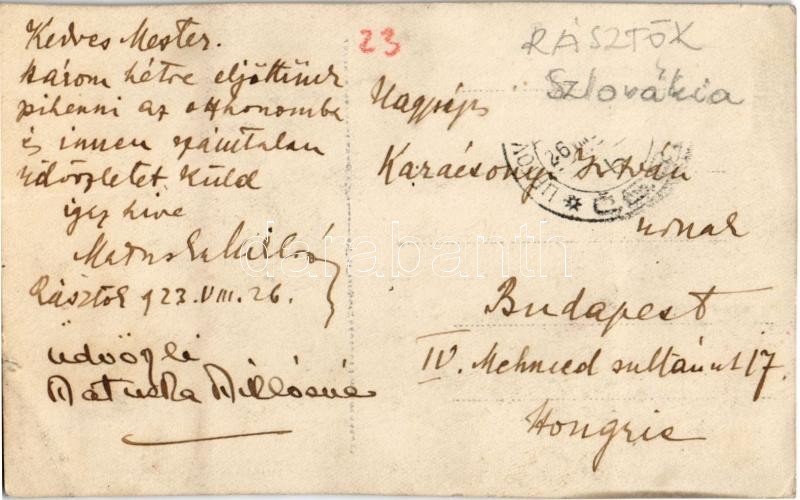 Kedves Mester.
három hétre eljöttünk
pihenni az otthonomba
és innen számtalan
üdvözletet küld
igaz híve
Matuska Milló
Rásztok 923.VIII.26.
üdvözli
Matuska Millósné
23
RÁSZTÓK
Szlovákia
Nagys
Karácsonyi István
úrnak
Budapest
IV. Mehmed sultánut 17.
Hongrie
26
darabanth